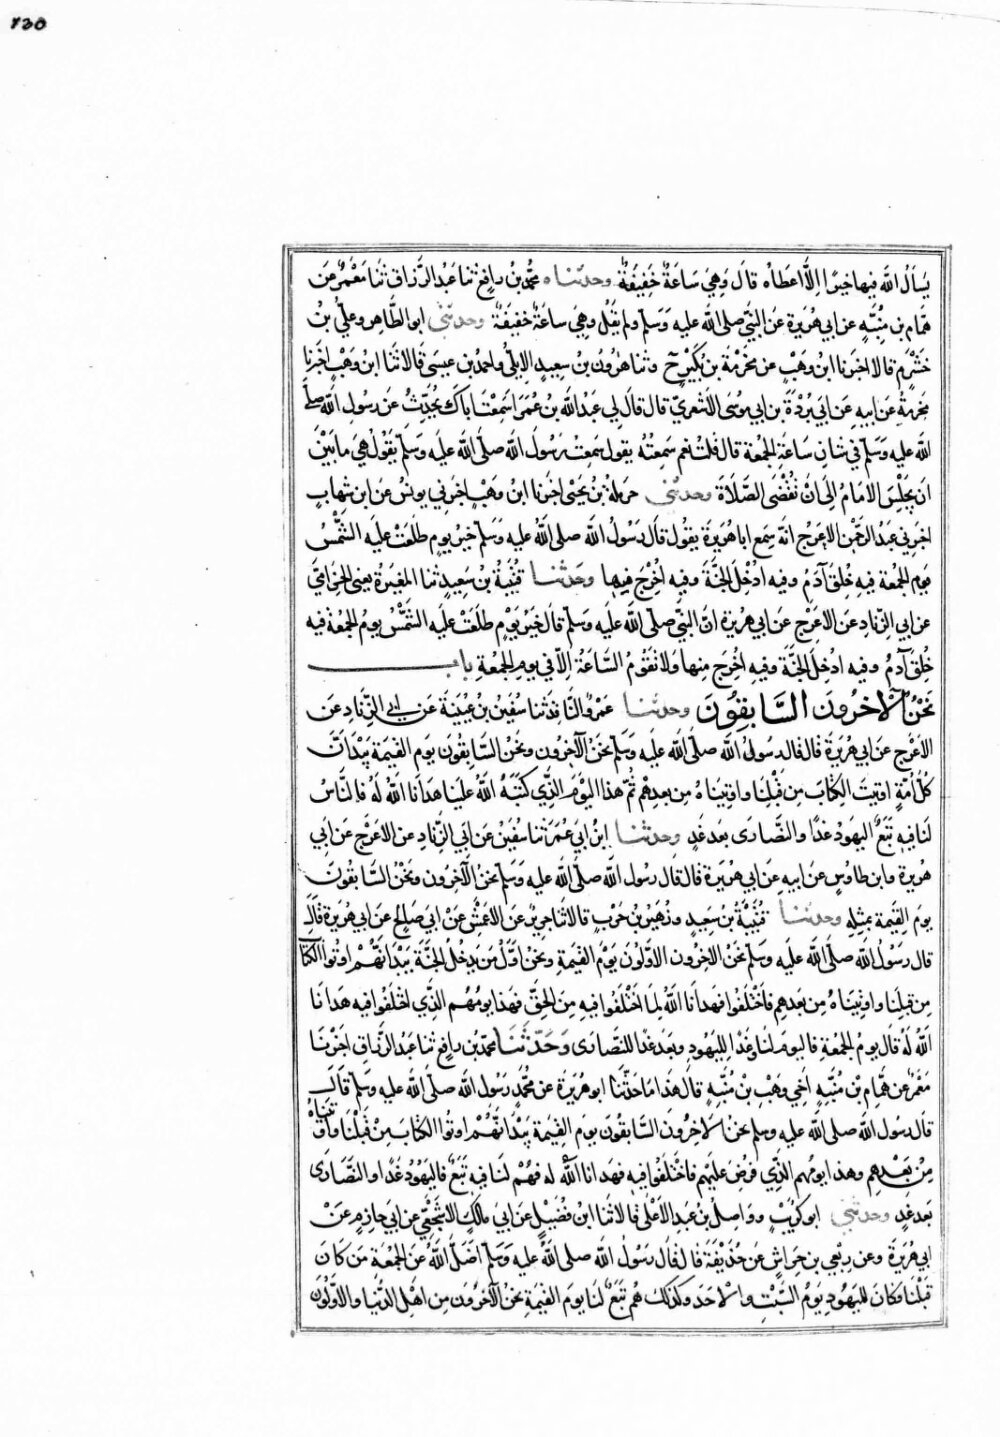 ٢٣٥
يسأل الله فيها خيرا الا اعطاه قال وهي ساعة خفيفة وحدثناه محمد بن رافع ثنا عبد الرزاق ثنا معمر عن
همام بن منبه عن ابي هريرة عن النبي صلى الله عليه وسلم ولم يقل وهي ساعة خفيفة وحدثني ابو الطاهر وعلي بن
خشرم قالا اخبرنا ابن وهب عن مخرمة بن بكير ح وثنا هرون بن سعيد الايلي واحمد بن عيسى قالا ثنا ابن وهب اخبرنا
مخرمة عن ابيه عن ابي بردة بن ابي موسى الاشعري قال قال لي عبد الله بن عمر اسمعت اباك يحدث عن رسول الله صلى
الله عليه وسلم في شان ساعة الجمعة قال قلت نعم سمعته يقول سمعت رسول الله صلى الله عليه وسلم يقول هي ما بين
ان يجلس الامام الى ان تقضى الصلاة وحدثني حرملة بن يحيى اخبرنا ابن وهب اخبرني يونس عن ابن شهاب
اخبرني عبد الرحمن الاعرج انه سمع ابا هريرة يقول قال رسول الله صلى الله عليه وسلم خير يوم طلعت عليه الشمس
يوم الجمعة فيه خلق آدم وفيه ادخل الجنة وفيه اخرج فيها وحدثنا قتيبة بن سعيد ثنا المغيرة يعني الحزامي
عن ابي الزناد عن الاعرج عن ابي هريرة ان النبي صلى الله عليه وسلم قال خير يوم طلعت عليه الشمس يوم الجمعة فيه
خلق آدم وفيه ادخل الجنة وفيه اخرج منها ولا تقوم الساعة الا في يوم الجمعة باب
نحن الآخرون السابقون وحدثنا عمرو الناقد ثنا سفين بن عيينة عن ابي الزناد عن
الاعرج عن ابي هريرة قال قال رسول الله صلى الله عليه وسلم نحن الآخرون ونحن السابقون يوم القيمة بيد ان
كل امة اوتيت الكتاب من قبلنا واوتيناه من بعدهم ثم هذا اليوم الذي كتبه الله علينا هدانا الله له فالناس
لنا فيه تبع اليهود غدا والنصارى بعد غد وحدثنا ابن ابي عمر ثنا سفين عن ابي الزناد عن الاعرج عن ابي
هريرة وابن طاوس عن ابيه عن ابي هريرة قال قال رسول الله صلى الله عليه وسلم نحن الآخرون ونحن السابقون
يوم القيمة بمثله وحدثنا قتيبة بن سعيد وزهير بن حرب قالا ثنا جرير عن الاعمش عن ابي صالح عن ابي هريرة قال
قال رسول الله صلى الله عليه وسلم نحن الآخرون الاولون يوم القيمة ونحن اول من يدخل الجنة بيد انهم اوتوا الكتاب
من قبلنا واوتيناه من بعدهم فاختلفوا فهدانا الله لما اختلفوا فيه من الحق فهذا يومهم الذي اختلفوا فيه هدانا
الله له قال يوم الجمعة فاليوم لنا وغدا لليهود وبعد غد للنصارى وحدثنا محمد بن رافع ثنا عبد الرزاق اخبرنا
معمر عن همام بن منبه اخي وهب بن منبه قال هذا ما حدثنا ابو هريرة عن محمد رسول الله صلى الله عليه وسلم قال
قال رسول الله صلى الله عليه وسلم نحن الآخرون السابقون يوم القيمة بيد انهم اوتوا الكتاب من قبلنا واوتيناه
من بعدهم وهذا يومهم الذي فرض عليهم فاختلفوا فيه فهدانا الله له فهم لنا فيه تبع فاليهود غدا والنصارى
بعد غد وحدثني ابو كريب وواصل بن عبد الاعلى قالا ثنا ابن فضيل عن ابي مالك الاشجعي عن ابي حازم عن
ابي هريرة وعن ربعي بن حراش عن حذيفة قال قال رسول الله صلى الله عليه وسلم اضل الله عن الجمعة من كان
قبلنا فكان لليهود يوم السبت والاحد وكذلك هم تبع لنا يوم القيمة نحن الآخرون من اهل الدنيا والاولون